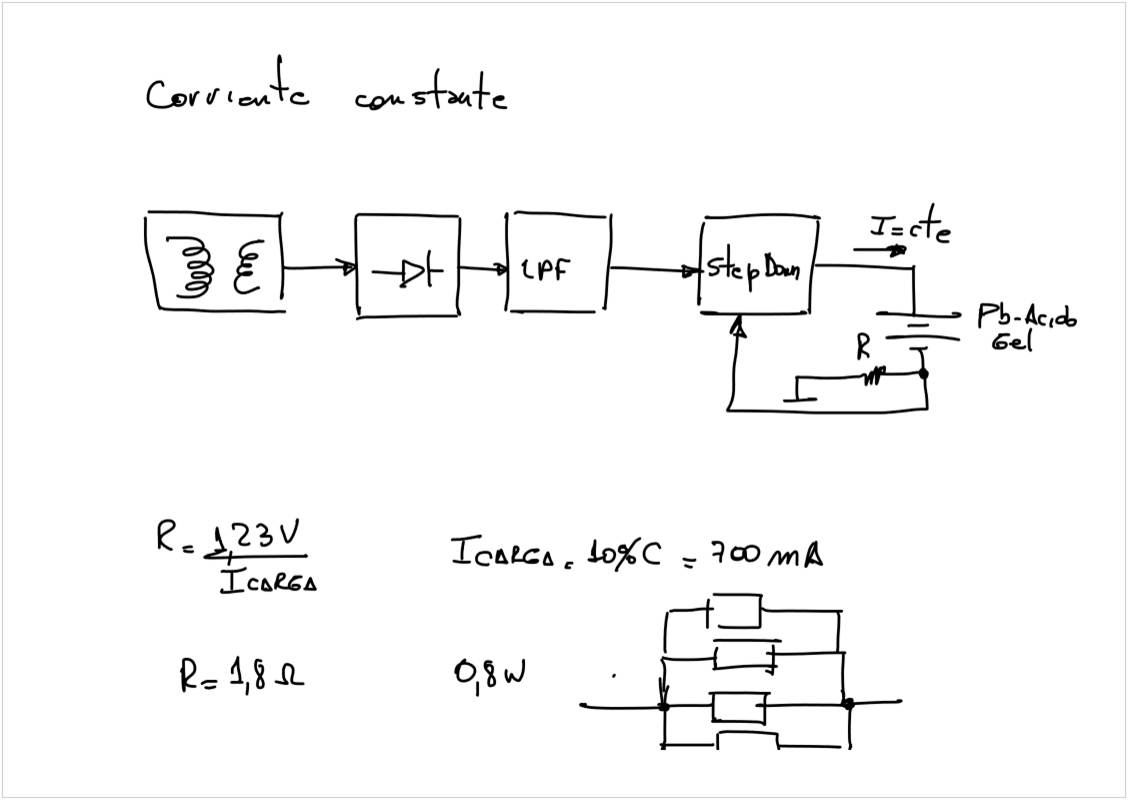 Corriente constante
LPF
Step Down
I=cte
Pb-Acido
Gel
R
R = 1,23V / ICARGA
ICARGA = 10%C = 700 mA
R = 1,8 Ω
0,8W